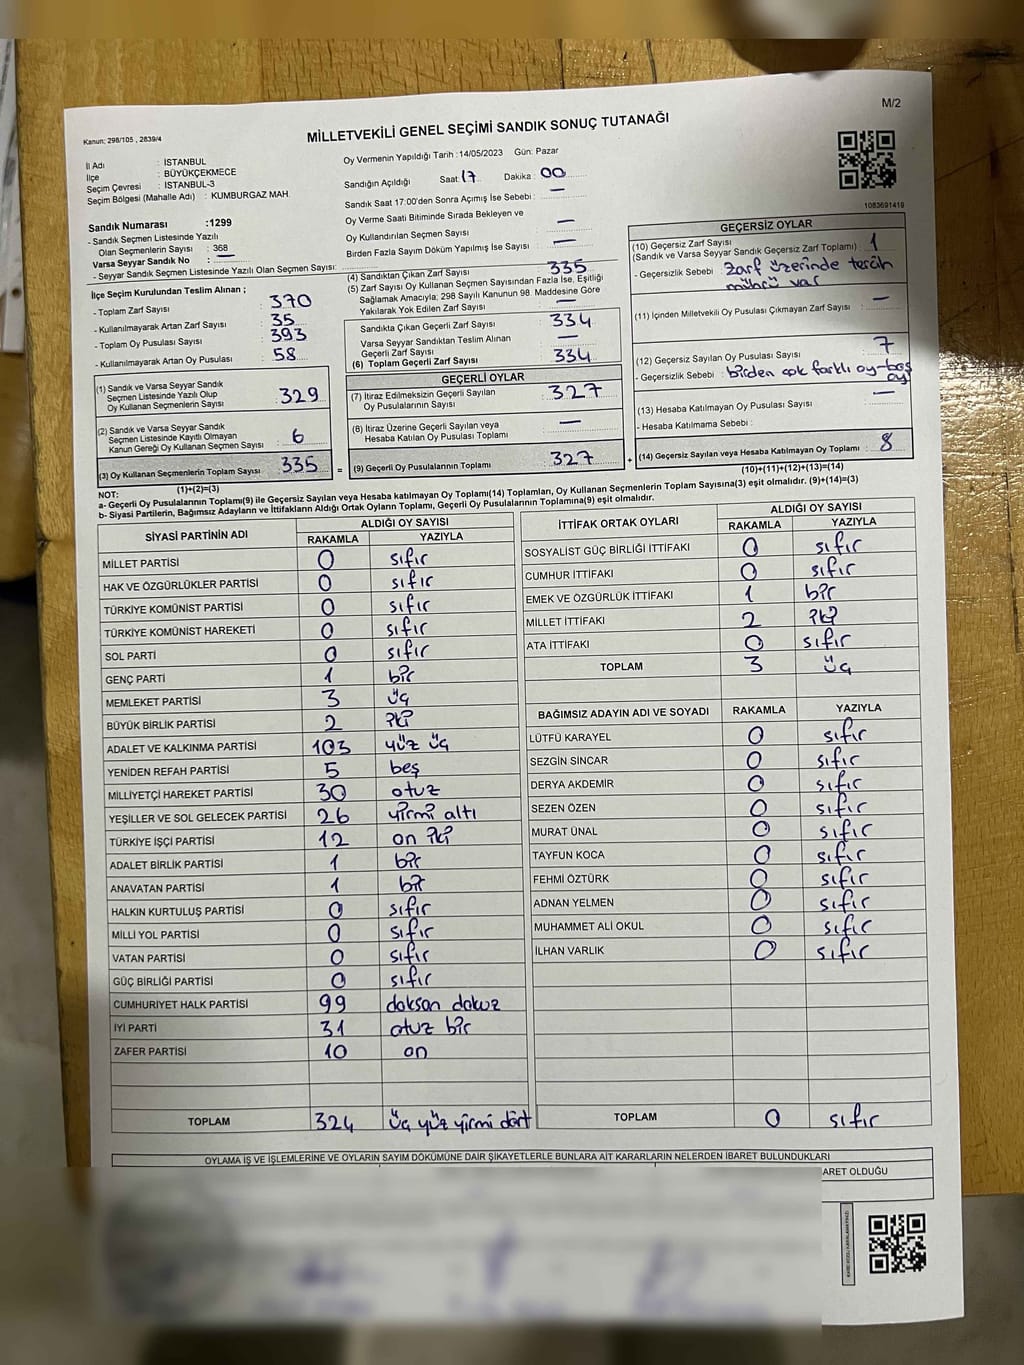 M/2
Kanun: 298/105 , 2839/4
MİLLETVEKİLİ GENEL SEÇİMİ SANDIK SONUÇ TUTANAĞI
İl Adı : İSTANBUL
İlçe : BÜYÜKÇEKMECE
Seçim Çevresi : İSTANBUL-3
Seçim Bölgesi (Mahalle Adı) : KUMBURGAZ MAH.
Oy Vermenin Yapıldığı Tarih : 14/05/2023 Gün: Pazar
Sandığın Açıldığı Saat: 17 Dakika : 00
Sandık Saat 17:00'den Sonra Açımış İse Sebebi : —
Oy Verme Saati Bitiminde Sırada Bekleyen ve
Oy Kullandırılan Seçmen Sayısı : —
Birden Fazla Sayım Döküm Yapılmış İse Sayısı : —
1083691419
Sandık Numarası :1299
- Sandık Seçmen Listesinde Yazılı
Olan Seçmenlerin Sayısı : 368
Varsa Seyyar Sandık No : —
- Seyyar Sandık Seçmen Listesinde Yazılı Olan Seçmen Sayısı:
İlçe Seçim Kurulundan Teslim Alınan ;
- Toplam Zarf Sayısı : 370
- Kullanılmayarak Artan Zarf Sayısı : 35
- Toplam Oy Pusulası Sayısı : 393
- Kullanılmayarak Artan Oy Pusulası : 58
(1) Sandık ve Varsa Seyyar Sandık
Seçmen Listesinde Yazılı Olup
Oy Kullanan Seçmenlerin Sayısı : 329
(2) Sandık ve Varsa Seyyar Sandık
Seçmen Listesinde Kayıtlı Olmayan
Kanun Gereği Oy Kullanan Seçmen Sayısı : 6
(3) Oy Kullanan Seçmenlerin Toplam Sayısı : 335
(1)+(2)=(3)
(4) Sandıktan Çıkan Zarf Sayısı : 335
(5) Zarf Sayısı Oy Kullanan Seçmen Sayısından Fazla İse, Eşitliği
Sağlamak Amacıyla; 298 Sayılı Kanunun 98. Maddesine Göre
Yakılarak Yok Edilen Zarf Sayısı : —
Sandıkta Çıkan Geçerli Zarf Sayısı : 334
Varsa Seyyar Sandıktan Teslim Alınan
Geçerli Zarf Sayısı : —
(6) Toplam Geçerli Zarf Sayısı : 334
GEÇERLİ OYLAR
(7) İtiraz Edilmeksizin Geçerli Sayılan
Oy Pusulalarının Sayısı : 327
(8) İtiraz Üzerine Geçerli Sayılan veya
Hesaba Katılan Oy Pusulası Toplamı : —
= (9) Geçerli Oy Pusulalarının Toplamı : 327 +
GEÇERSİZ OYLAR
(10) Geçersiz Zarf Sayısı
(Sandık ve Varsa Seyyar Sandık Geçersiz Zarf Toplamı) : 1
- Geçersizlik Sebebi : Zarf üzerinde tercih
mührü var
(11) İçinden Milletvekili Oy Pusulası Çıkmayan Zarf Sayısı : —
(12) Geçersiz Sayılan Oy Pusulası Sayısı : 7
- Geçersizlik Sebebi : birden çok farklı oy-boş
oy
(13) Hesaba Katılmayan Oy Pusulası Sayısı : —
- Hesaba Katılmama Sebebi :
(14) Geçersiz Sayılan veya Hesaba Katılmayan Oy Toplamı : 8
(10)+(11)+(12)+(13)=(14)
NOT:
a- Geçerli Oy Pusulalarının Toplamı(9) ile Geçersiz Sayılan veya Hesaba katılmayan Oy Toplamı(14) Toplamları, Oy Kullanan Seçmenlerin Toplam Sayısına(3) eşit olmalıdır. (9)+(14)=(3)
b- Siyasi Partilerin, Bağımsız Adayların ve İttifakların Aldığı Ortak Oyların Toplamı, Geçerli Oy Pusulalarının Toplamına(9) eşit olmalıdır.
SİYASİ PARTİNİN ADI
ALDIĞI OY SAYISI
RAKAMLA YAZIYLA
MİLLET PARTİSİ 0 sıfır
HAK VE ÖZGÜRLÜKLER PARTİSİ 0 sıfır
TÜRKİYE KOMÜNİST PARTİSİ 0 sıfır
TÜRKİYE KOMÜNİST HAREKETİ 0 sıfır
SOL PARTİ 0 sıfır
GENÇ PARTİ 1 bir
MEMLEKET PARTİSİ 3 üç
BÜYÜK BİRLİK PARTİSİ 2 iki
ADALET VE KALKINMA PARTİSİ 103 yüz üç
YENİDEN REFAH PARTİSİ 5 beş
MİLLİYETÇİ HAREKET PARTİSİ 30 otuz
YEŞİLLER VE SOL GELECEK PARTİSİ 26 yirmi altı
TÜRKİYE İŞÇİ PARTİSİ 12 on iki
ADALET BİRLİK PARTİSİ 1 bir
ANAVATAN PARTİSİ 1 bir
HALKIN KURTULUŞ PARTİSİ 0 sıfır
MİLLİ YOL PARTİSİ 0 sıfır
VATAN PARTİSİ 0 sıfır
GÜÇ BİRLİĞİ PARTİSİ 0 sıfır
CUMHURİYET HALK PARTİSİ 99 doksan dokuz
İYİ PARTİ 31 otuz bir
ZAFER PARTİSİ 10 on
TOPLAM 324 üç yüz yirmi dört
İTTİFAK ORTAK OYLARI
ALDIĞI OY SAYISI
RAKAMLA YAZIYLA
SOSYALİST GÜÇ BİRLİĞİ İTTİFAKI 0 sıfır
CUMHUR İTTİFAKI 0 sıfır
EMEK VE ÖZGÜRLÜK İTTİFAKI 1 bir
MİLLET İTTİFAKI 2 iki
ATA İTTİFAKI 0 sıfır
TOPLAM 3 üç
BAĞIMSIZ ADAYIN ADI VE SOYADI RAKAMLA YAZIYLA
LÜTFÜ KARAYEL 0 sıfır
SEZGİN SİNCAR 0 sıfır
DERYA AKDEMİR 0 sıfır
SEZEN ÖZEN 0 sıfır
MURAT ÜNAL 0 sıfır
TAYFUN KOCA 0 sıfır
FEHMİ ÖZTÜRK 0 sıfır
ADNAN YELMEN 0 sıfır
MUHAMMET ALİ OKUL 0 sıfır
İLHAN VARLIK 0 sıfır
TOPLAM 0 sıfır
OYLAMA İŞ VE İŞLEMLERİNE VE OYLARIN SAYIM DÖKÜMÜNE DAİR ŞİKAYETLERLE BUNLARA AİT KARARLARIN NELERDEN İBARET BULUNDUKLARI
ARET OLDUĞU